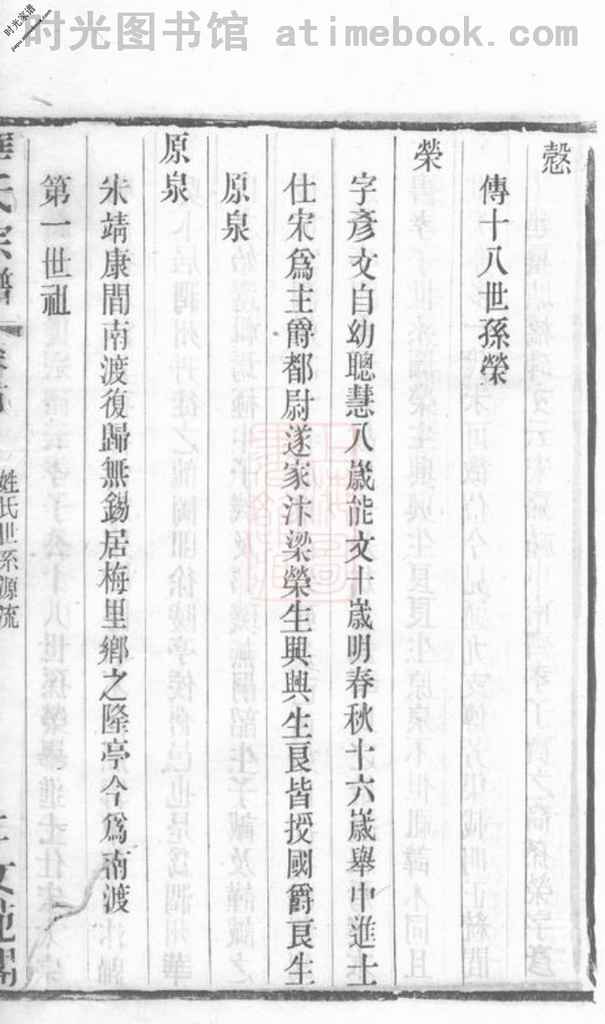 时光图书馆 atimebook.com
时光家谱
慤
傳十八世孫榮
榮
字彥文自幼聰慧八歲能文十歲明春秋十六歲舉中進士
仕宋爲主爵都尉遂家汴梁榮生興興生㫐皆授國爵㫐生
原泉
原泉
宋靖康間南渡復歸無錫居梅里鄉之隆亭今爲南渡
第一世祖
華氏宗譜
姓氏世系源流
文苑閣